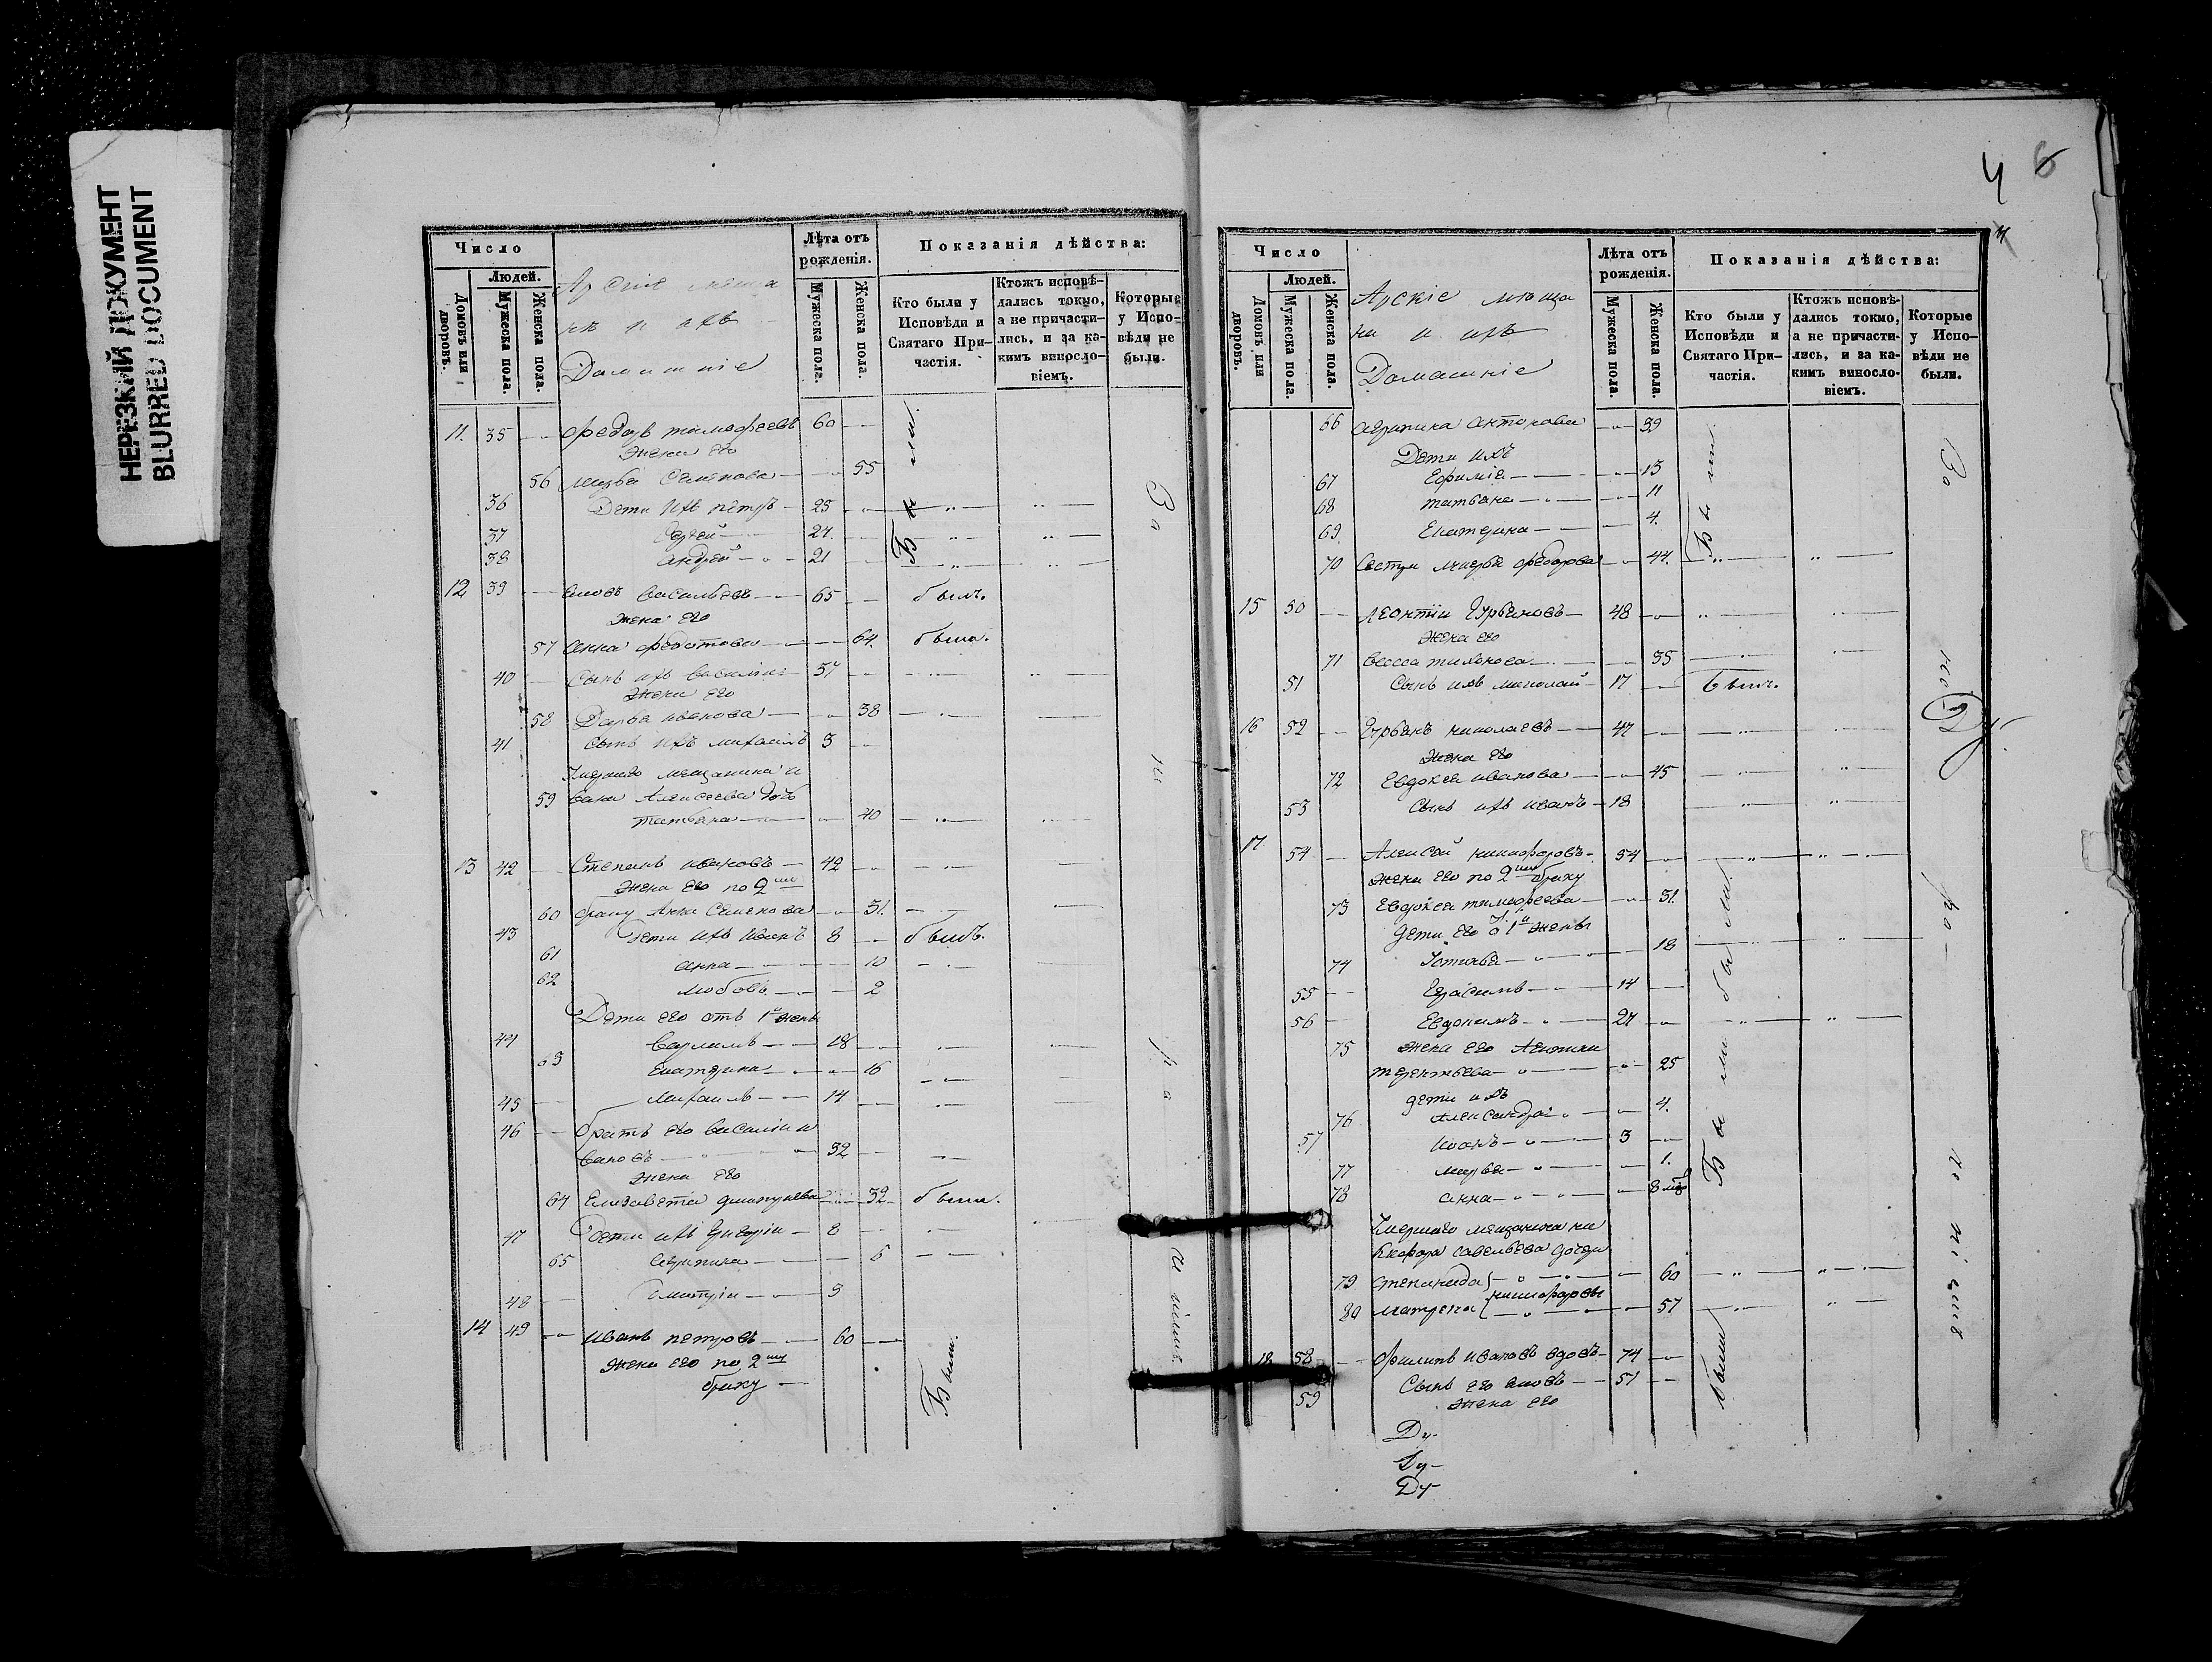 НЕРЕЗКИЙ ДОКУМЕНТ
BLURRED DOCUMENT
Число
Людей.
Домовъ или дворовъ.
Мужеска пола.
Женска пола.
Арскіе меща
не и ихъ
Домашніе
Лѣта отъ рожденія.
Мужеска пола.
Женска пола.
Показанія дѣйства:
Кто были у Исповѣди и Святаго Причастія.
Ктожъ исповѣдались токмо, а не причастились, и за какимъ винословіемъ.
Которые у Исповѣди не были.
11. 35 Федоръ тимофеевъ 60
жена его
56 Марья Семенова 55
36 Дети ихъ петръ 25
37 Сергей 24.
38 Андрей 21
Были
12 39 Яковъ Васильевъ 65 былъ.
жена его
57 Анна федотова 64. была.
40 Сынъ ихъ Василии 37
жена его
58 Дарья иванова 38
41 Сынъ ихъ михаилъ 3
Умершаго мещанина и
59 вана Алексеева дочь
татьяна 40
13 42 Степанъ ивановъ 42
жена его по 2му
60 браку Анна Семенова 31.
43 Дети ихъ Иванъ 8 былъ.
61 анна 10
62 любовь 2
Дети его отъ 1й жены
44 Варламъ 18
63 Екатерина 16
45 михаилъ 14
46 братъ его Василии и
вановъ 32
жена его
64 Елизавета дмитриева 32 была.
47 Дети ихъ Григории 8
65 Агрипина 6
48 Димитрии 3
14 49 иванъ петровъ 60
жена его по 2му
браку
Были.
4 6
4
Число
Людей.
Домовъ или дворовъ.
Мужеска пола.
Женска пола.
Арскіе мѣща
не и ихъ
Домашніе
Лѣта отъ рожденія.
Мужеска пола.
Женска пола.
Показанія дѣйства:
Кто были у Исповѣди и Святаго Причастія.
Ктожъ исповѣдались токмо, а не причастились, и за какимъ винословіемъ.
Которые у Исповѣди не были.
66 агрипина антонова 39
Дети ихъ
67 Ефимія 13
68 татьяна 11
69 Екатерина 4.
Были
70 Сестра марья федорова 44.
15 50 леонтіи Гурьяновъ 48
жена его
71 васса тихонова 35
51 Сынъ ихъ николай 17 былъ.
16 52 Гурьянъ николаевъ 47
жена его
72 Евдокея иванова 45
53 Сынъ ихъ иванъ 18
17 54 Алексей никифоровъ 54
жена его по 2му браку
73 Евдокея тимофеева 31.
Дети его о 1й жены
74 Устинья 18
55 Герасимъ 14
56 Евдокимъ 27
75 жена его
терентьева 25
дети ихъ
76 александра 4.
57 иоанъ 3
77 марья 1.
78 анна 8 мѣ
были
Были
Умершаго мещанина ни
кифора савельева дочери
79 степанида 60
никифоровы
80 матрена 57
18 58 филипъ ивановъ вдовъ 74
59 Сынъ его яковъ 51
жена его
были
Ду-
Ду-
Ду